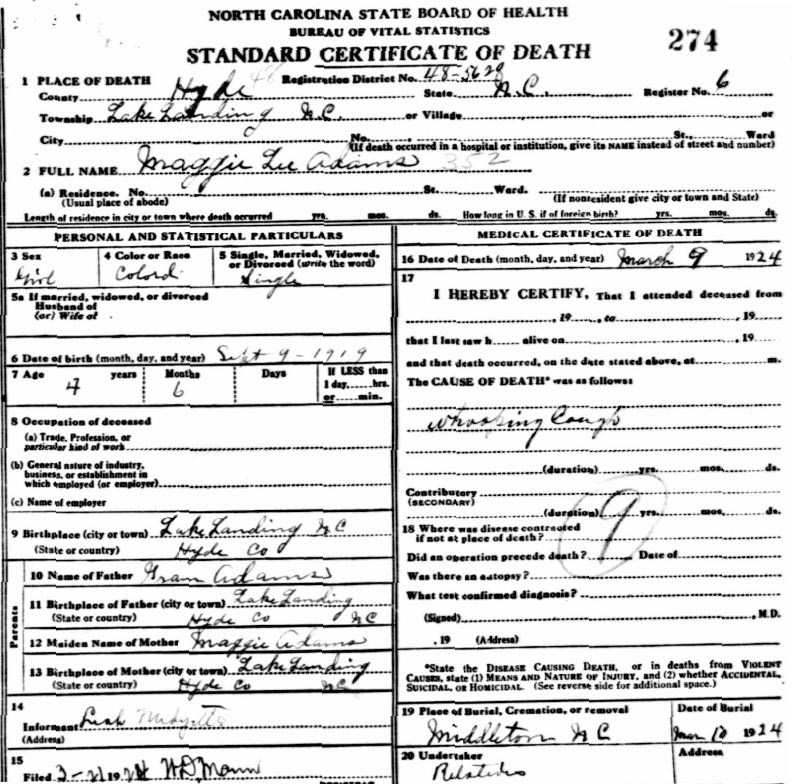 NORTH CAROLINA STATE BOARD OF HEALTH
BUREAU OF VITAL STATISTICS
STANDARD CERTIFICATE OF DEATH
274
1 PLACE OF DEATH
Registration District No. 48-5628
County Hyde State N.C. Register No. 6
Township Lake Landing N.C. or Village or
City No. St., Ward
(If death occurred in a hospital or institution, give its NAME instead of street and number)
2 FULL NAME Maggie Lee Adams 352
(a) Residence. No. St. Ward.
(Usual place of abode) (If nonresident give city or town and State)
Length of residence in city or town where death occurred yrs. mos. ds. How long in U. S. if of foreign birth? yrs. mos. ds.
PERSONAL AND STATISTICAL PARTICULARS
3 Sex 4 Color or Race 5 Single, Married, Widowed, or Divorced (write the word)
Girl Colord Single
5a If married, widowed, or divorced
Husband of
(or) Wife of
6 Date of birth (month, day, and year) Sept 9-1919
7 Age years Months Days If LESS than
4 6 1 day, hrs.
or min.
8 Occupation of deceased
(a) Trade, Profession, or
particular kind of work
(b) General nature of industry,
business, or establishment in
which employed (or employer)
(c) Name of employer
9 Birthplace (city or town) Lake Landing NC
(State or country) Hyde Co
Parents
10 Name of Father Gran Adams
11 Birthplace of Father (city or town) Lake Landing
(State or country) Hyde Co NC
12 Maiden Name of Mother Maggie Adams
13 Birthplace of Mother (city or town) Lake Landing
(State or country) Hyde Co NC
14
Informant Leah Midyette
(Address)
15
Filed 3-21 1924 W D Mann
MEDICAL CERTIFICATE OF DEATH
16 Date of Death (month, day, and year) March 9 1924
17
I HEREBY CERTIFY, That I attended deceased from
, 19 , to , 19
that I last saw h alive on , 19
and that death occurred, on the date stated above, at m.
The CAUSE OF DEATH* was as follows:
Whooping Cough
(duration) yrs. mos. ds.
Contributory
(SECONDARY)
(duration) yrs. mos. ds.
9
18 Where was disease contracted
if not at place of death?
Did an operation precede death? Date of
Was there an autopsy?
What test confirmed diagnosis?
(Signed) , M.D.
, 19 (Address)
*State the DISEASE CAUSING DEATH, or in deaths from VIOLENT
CAUSES, state (1) MEANS AND NATURE OF INJURY, and (2) whether ACCIDENTAL,
SUICIDAL, OR HOMICIDAL. (See reverse side for additional space.)
19 Place of Burial, Cremation, or removal Date of Burial
Middletown NC Mar 10 1924
20 Undertaker Address
Relatives